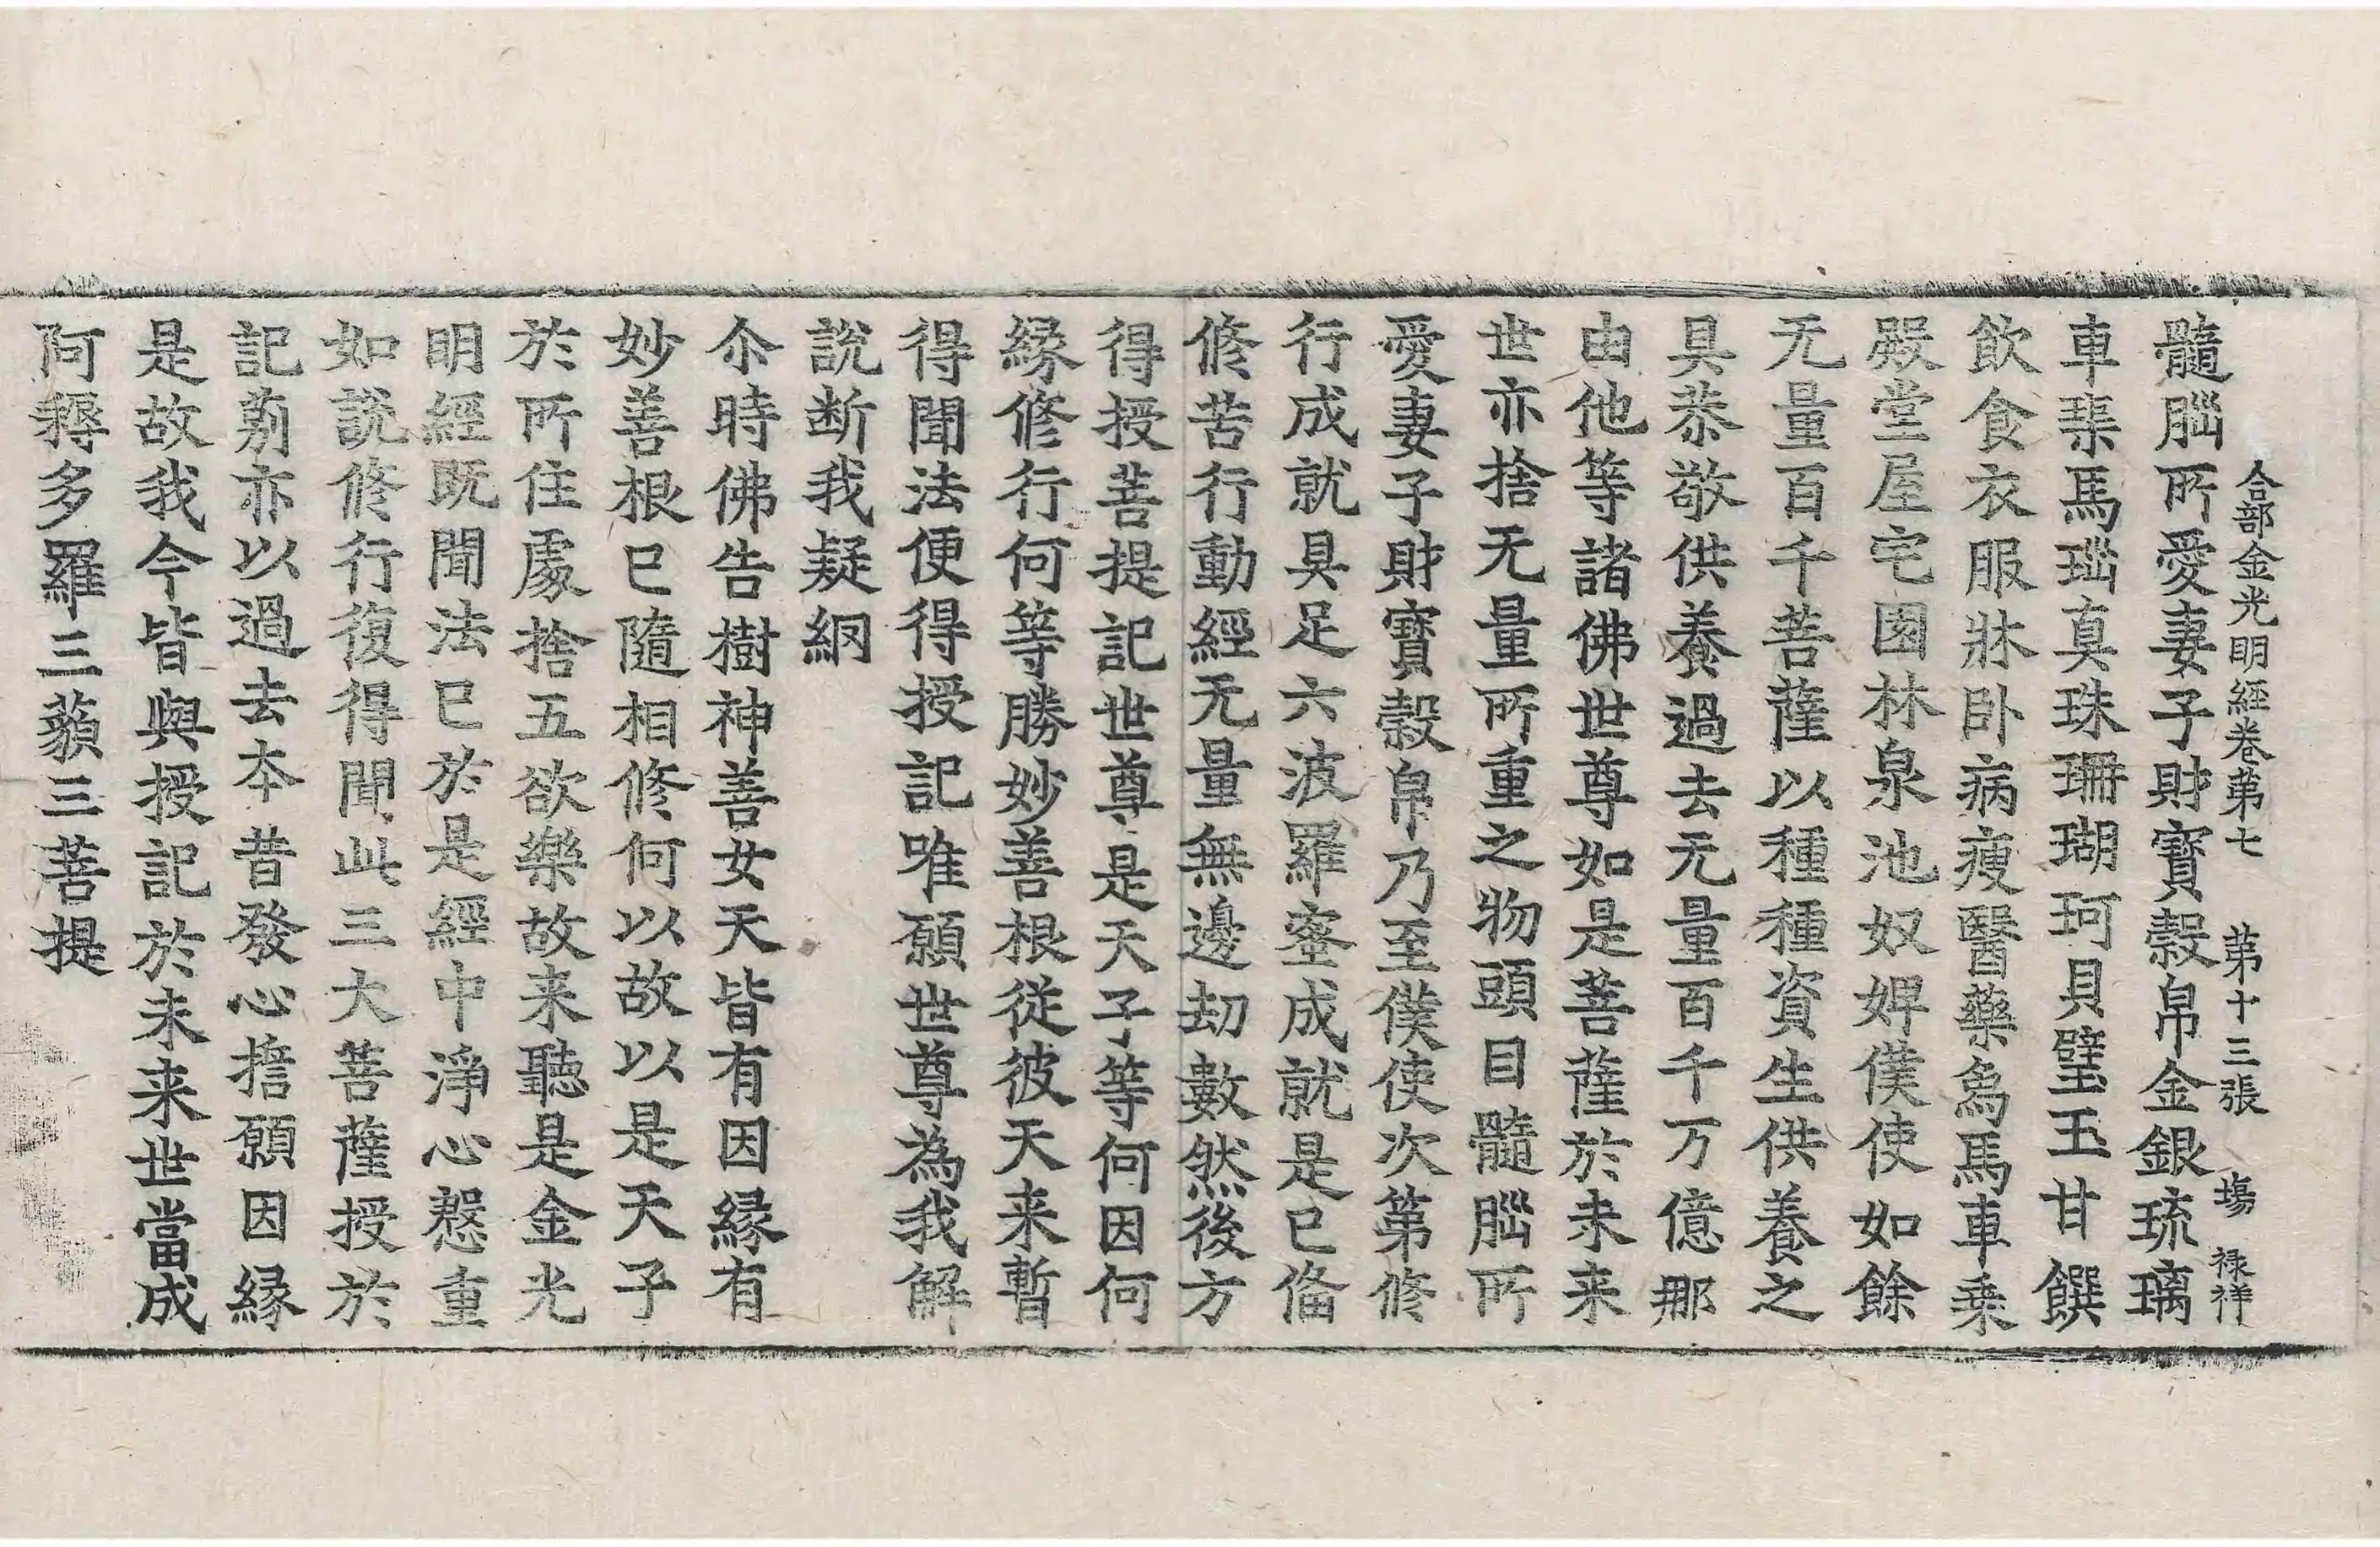 合部金光明經卷第七 第十三張 塲 禄祥
髓腦所愛妻子財寶穀帛金銀琉璃
車𤦲馬瑙真珠珊瑚珂貝璧玉甘饌
飲食衣服牀卧病瘦醫藥象馬車乘
殿堂屋宅園林泉池奴婢僕使如餘
无量百千菩薩以種種資生供養之
具恭敬供養過去无量百千万億那
由他等諸佛世尊如是菩薩於未来
世亦捨无量所重之物頭目髓腦所
愛妻子財寶穀帛乃至僕使次第修
行成就具足六波羅蜜成就是已俻
修苦行動經无量無邊劫數然後方
得授菩提記世尊是天子等何因何
緣修行何等勝妙善根從彼天来暫
得聞法便得授記唯願世尊為我解
說断我疑網
尒時佛告樹神善女天皆有因緣有
妙善根已隨相修何以故以是天子
於所住處捨五欲樂故来聽是金光
明經既聞法已於是經中淨心慇重
如說修行復得聞此三大菩薩授於
記莂亦以過去本昔發心擔願因緣
是故我今皆與授記於未来世當成
阿耨多羅三藐三菩提